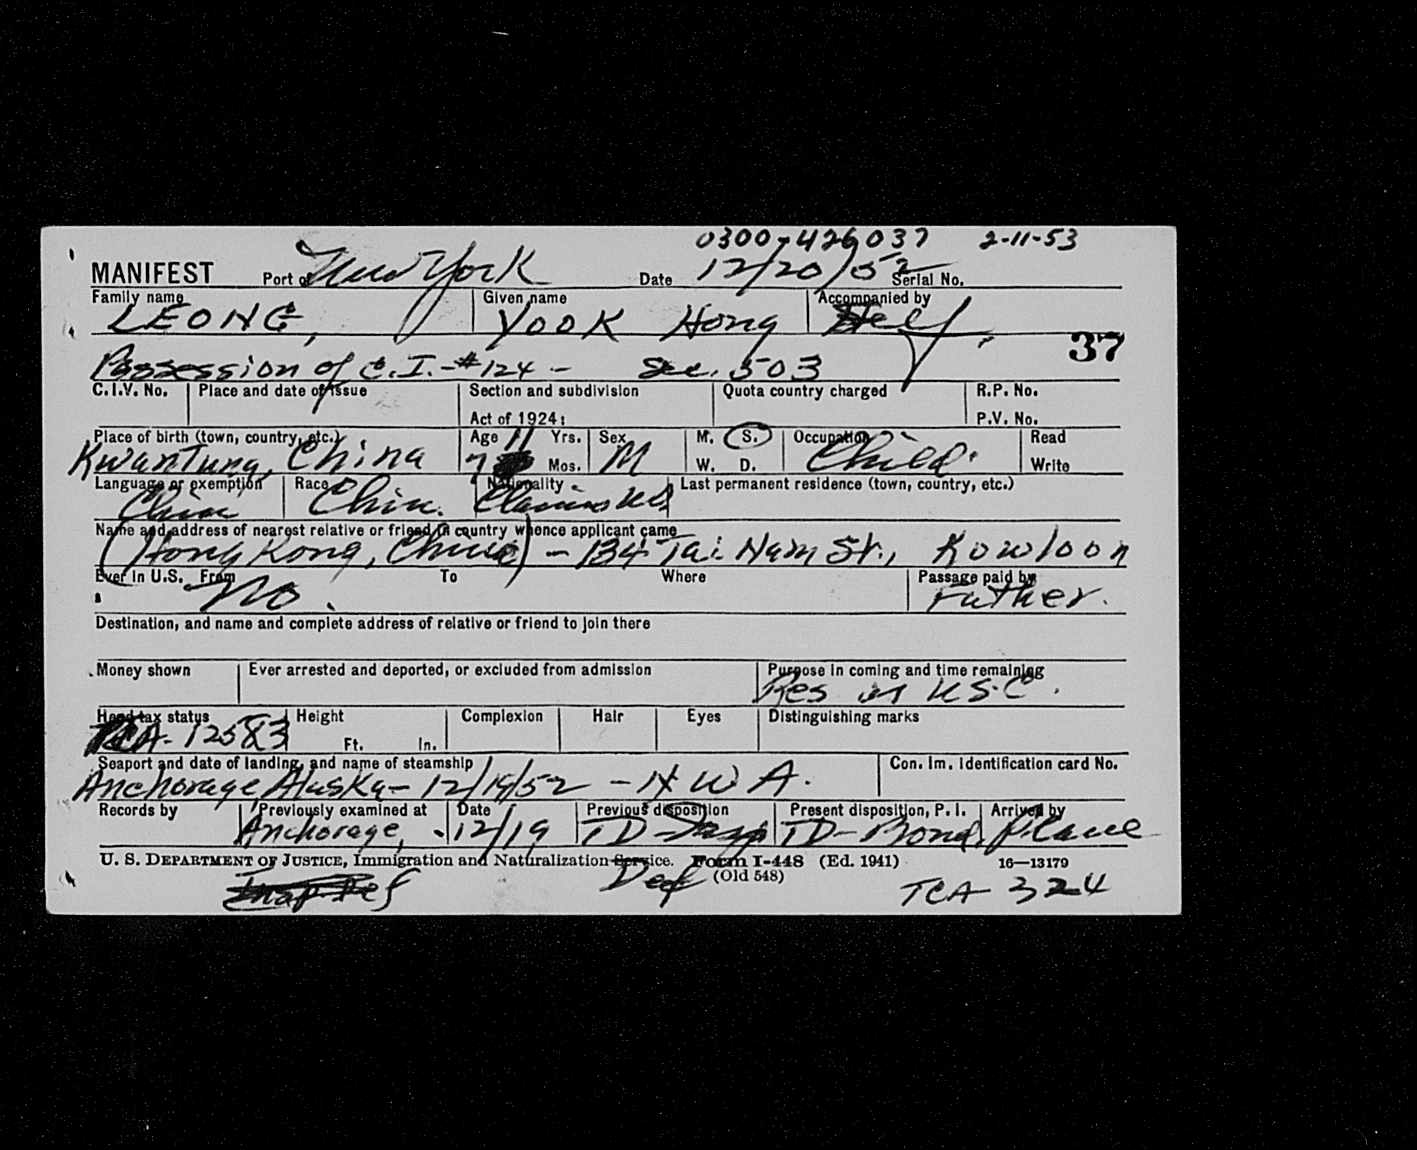 0300-426037 2-11-53
MANIFEST Port of New York Date 12/20/52 Serial No.
Family name Given name Accompanied by
LEONG, Yook Hong Self
37
Possession of C.I. #124 - Sec. 503
C.I.V. No. Place and date of issue Section and subdivision Quota country charged R.P. No.
Act of 1924: P.V. No.
Place of birth (town, country, etc.) Age 11 Yrs. Sex M. S. Occupation Read
KwanTung, China 7 Mos. M W. D. Child. Write
Language or exemption Race Nationality Last permanent residence (town, country, etc.)
Chin Chin. Claims US
Name and address of nearest relative or friend in country whence applicant came
(Hong Kong, China) - 134 Tai Nam St., Kowloon
Ever in U.S. From To Where Passage paid by
No. Father.
Destination, and name and complete address of relative or friend to join there
Money shown Ever arrested and deported, or excluded from admission Purpose in coming and time remaining
Res as USC.
Head tax status Height Complexion Hair Eyes Distinguishing marks
TCA-12583 Ft. In.
Seaport and date of landing, and name of steamship Con. Im. Identification card No.
Anchorage Alaska - 12/19/52 - N W A.
Records by Previously examined at Date Previous disposition Present disposition, P. I. Arrived by
Anchorage, 12/19 TD- TD- Bond. Plane
U. S. DEPARTMENT OF JUSTICE, Immigration and Naturalization Service. Form I-448 (Ed. 1941) 16—13179
(Old 548)
Def TCA 324